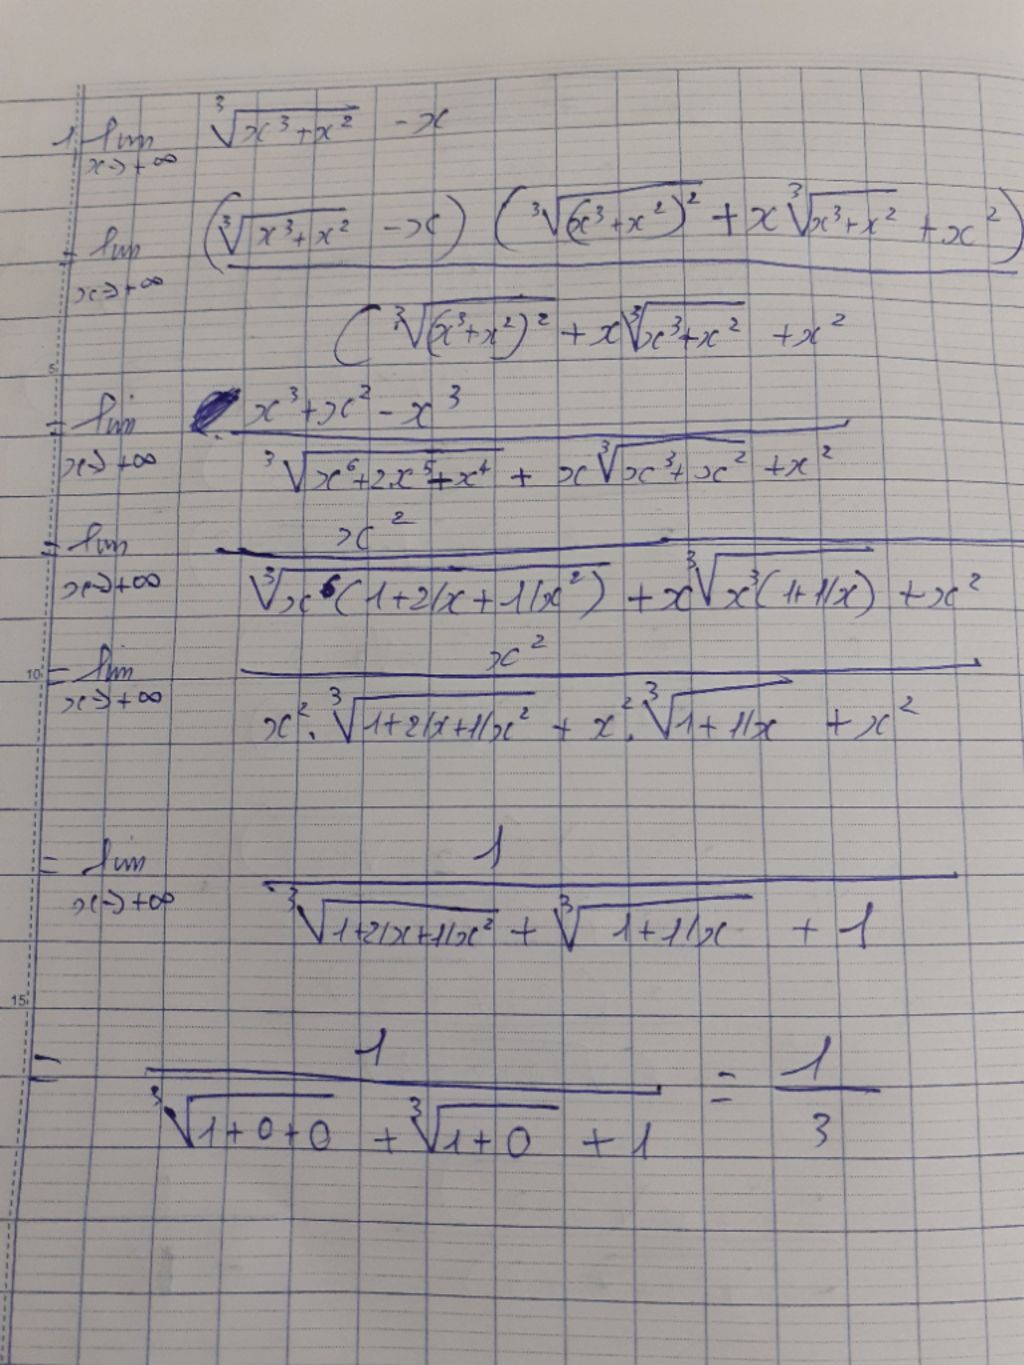 1. lim x→+∞ ∛(x³+x²) - x
= lim x→+∞ (∛(x³+x²) - x) (∛(x³+x²)² + x∛(x³+x²) + x²) / (∛(x³+x²)² + x∛(x³+x²) + x²
5
= lim x→+∞ x³+x²-x³ / ∛(x⁶+2x⁵+x⁴) + x∛(x³+x²) + x²
= lim x→+∞ x² / ∛(x⁶(1+2/x+1/x²)) + x∛(x³(1+1/x)) + x²
10
= lim x→+∞ x² / x².∛(1+2/x+1/x²) + x².∛(1+1/x) + x²
= lim x→+∞ 1 / ∛(1+2/x+1/x²) + ∛(1+1/x) + 1
15
= 1 / ∛(1+0+0) + ∛(1+0) + 1 = 1/3